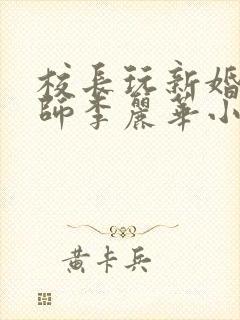 校長玩新婚
師李麗華小
黃卡兵